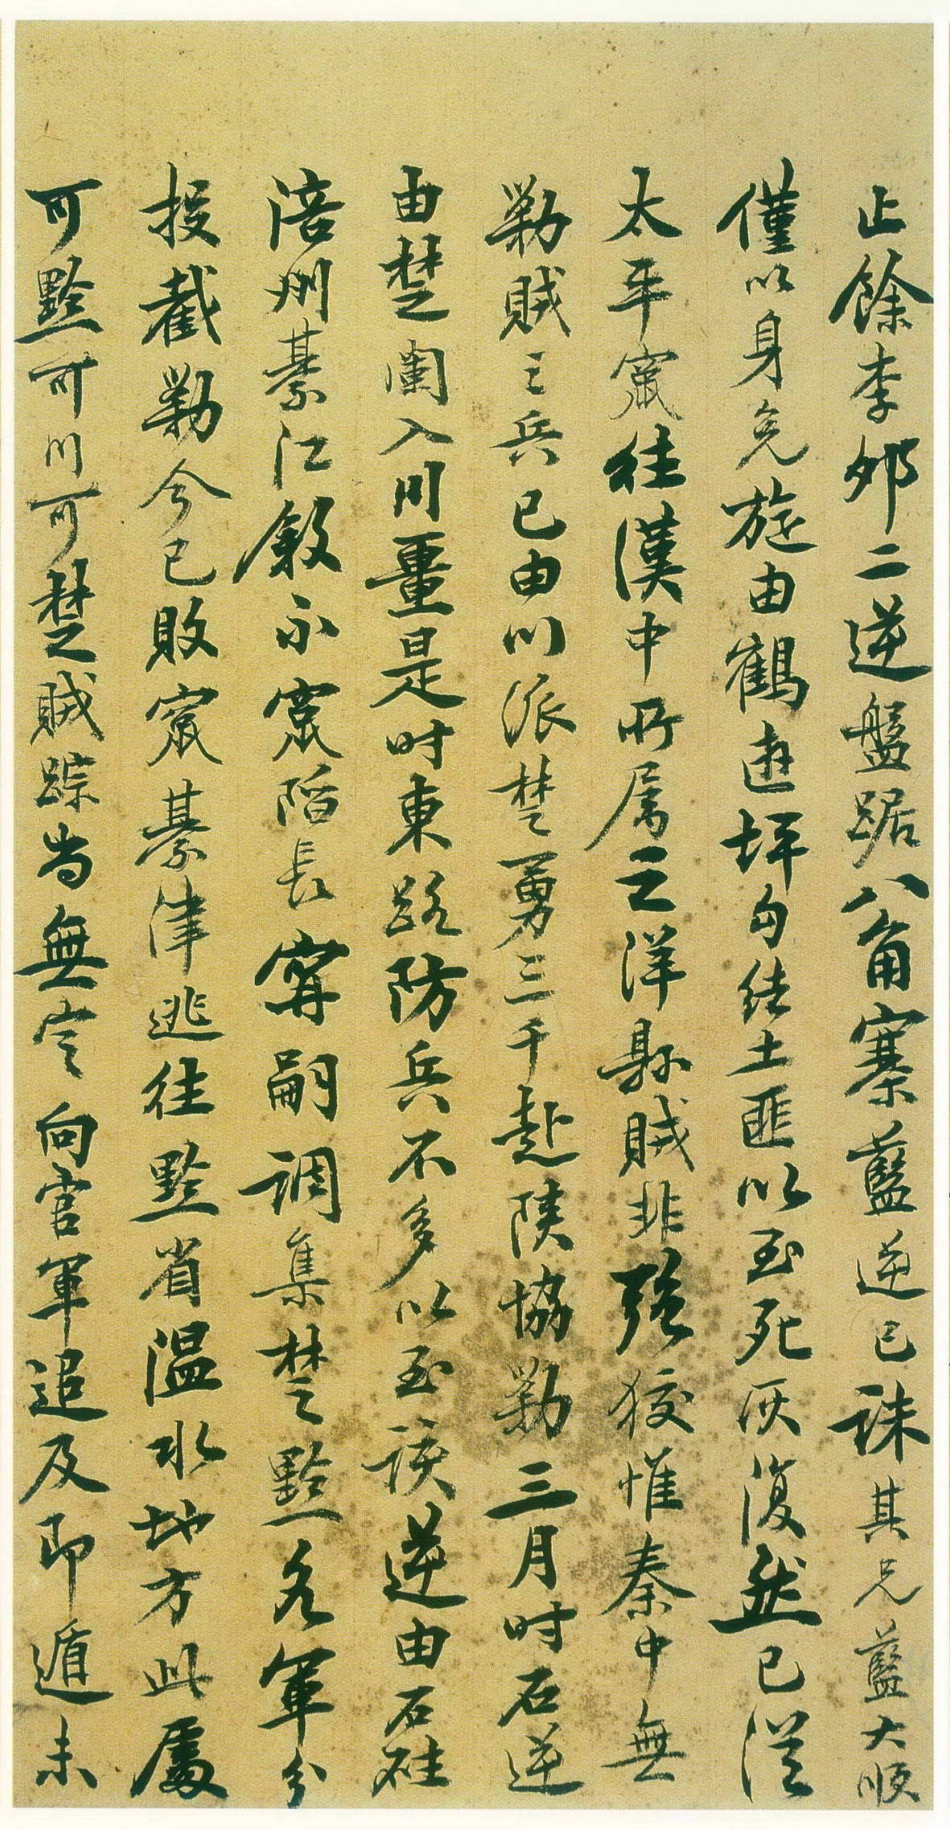 止餘李卯二逆盤踞八角寨藍逆已誅其兄藍大順
僅以身免旋由鶴遊坪勾結土匪以至死灰復然已從
太平竄往漢中所属之洋縣賊非強狡惟秦中無
勦賊之兵已由川派楚勇三千赴陝協勦三月時石逆
由楚闌入川量是时東路防兵不多以至该逆由石砫
涪州綦江敘永竄陷長寧嗣调集楚黔各軍分
投截勦今已敗竄綦津逃往黔省温水地方此處
可黔可川可楚賊踪尚無定向官軍追及即遁未